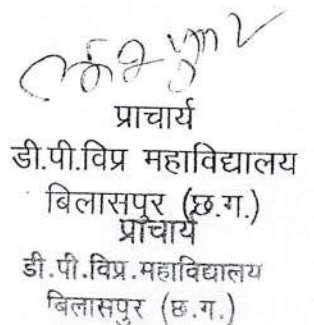 प्राचार्य
डी.पी.विप्र महाविद्यालय
बिलासपुर (छ.ग.)
प्राचार्य
डी.पी.विप्र.महाविद्यालय
बिलासपुर (छ.ग.)